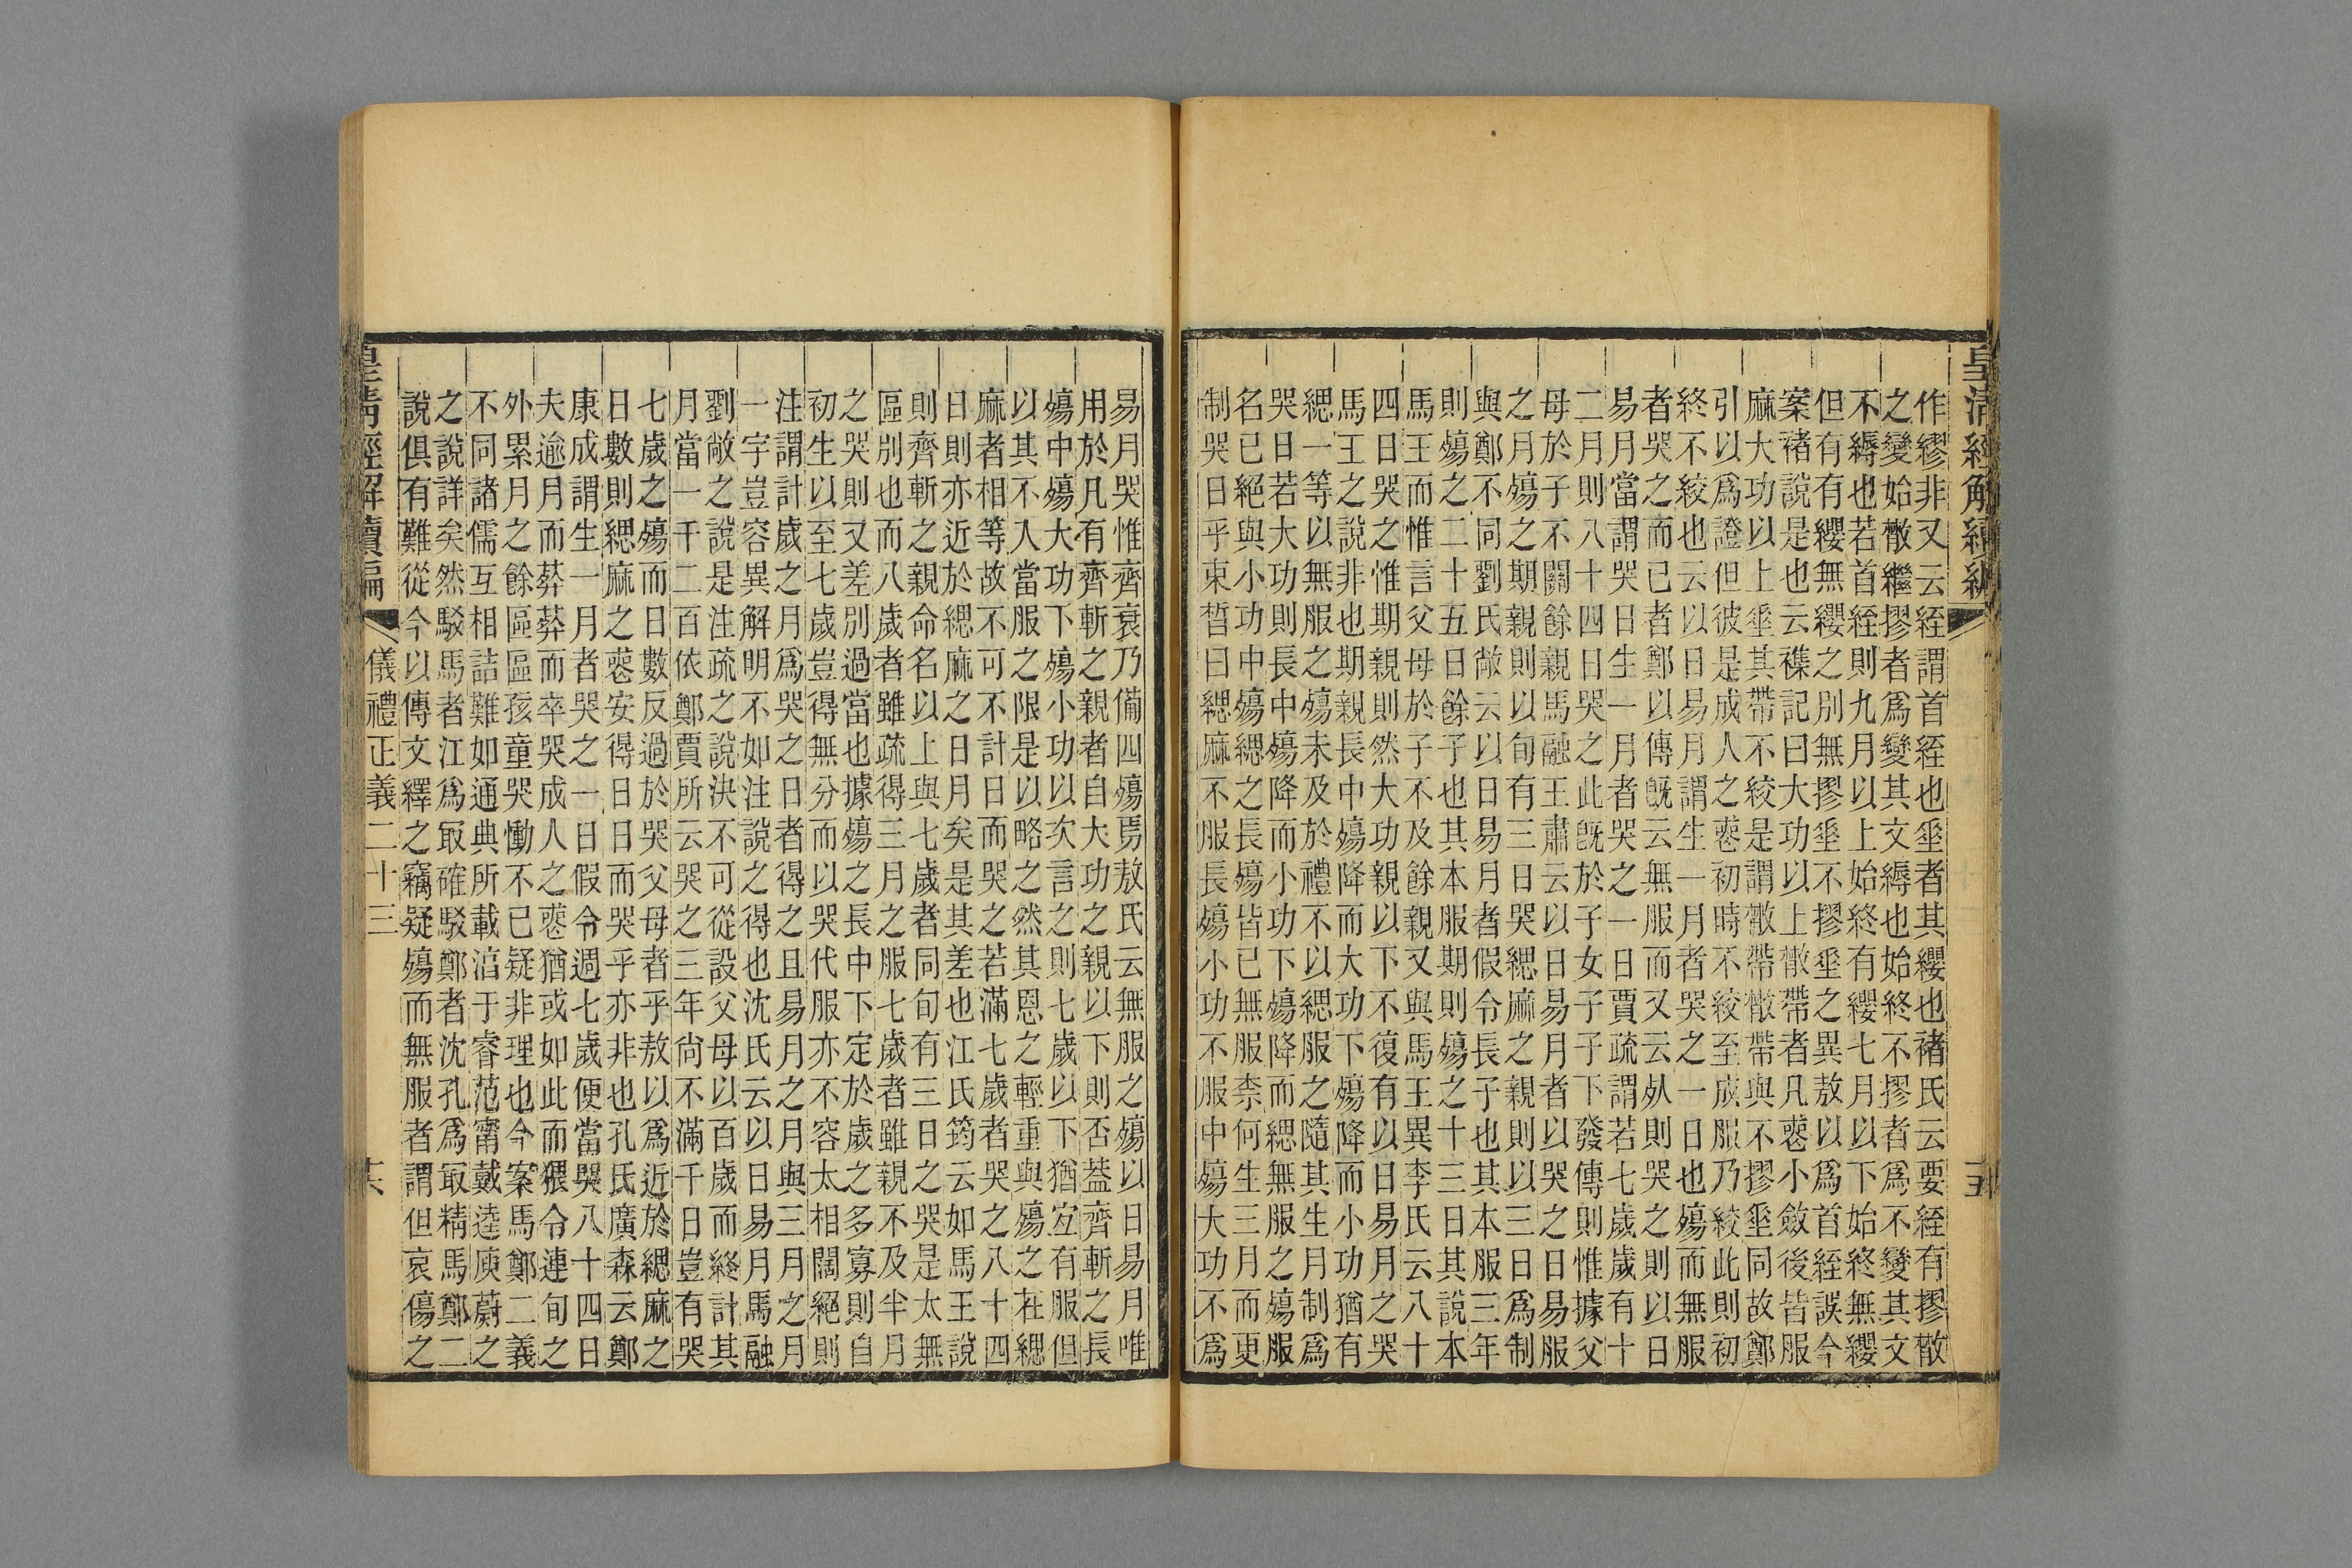 皇清經解續編
作繆非又云絰謂首絰也垂者其纓也褚氏云要絰有摎散
之變始散繼摎者爲變其文縟也始終不摎者爲不變其文
不縟也若首絰則九月以上始終有纓七月以下始終無纓
但有有纓無纓之別無摎垂不摎垂之異敖以爲首絰誤今
案褚說是也云襍記曰大功以上散帶者凡葬小斂後皆服
麻大功以上垂其帶不絞是謂散帶散帶與不摎垂同故鄭
引以爲證但彼是成人之葬初時不絞至成服乃絞此則初
終不絞也云以日易月謂生一月者哭之一日也殤而無服
者哭之而已者鄭以傳旣云無服而又云夙則哭之則以日
易月當謂哭日生一月者哭之一日賈疏謂若七歲歲有十
二月則八十四日哭之此旣於子女子子下發傳則惟據父
母於子不關餘親馬融王肅云以日易月者以哭之日易服
之月殤之期親則以旬有三日哭緦麻之親則以三日爲制
與鄭不同劉氏敞云以日易月者假令長子也其本服三年
則殤之二十五日餘子也其本服期則殤之十三日其說本
馬王而惟言父母於子不及餘親又與馬王異李氏云八十
四日哭之惟期親則然大功親以下不復有以日易月之哭
馬王之說非也期親長中殤降而大功下殤降而小功猶有
緦一等以無服之殤未及於禮不以緦服之隨其生月制爲
哭日若大功則長中殤降而小功下殤降而緦無服之殤服
名已絕與小功中殤緦之長殤皆已無服柰何生三月而更
制哭日乎束晳曰緦麻不服長殤小功不服中殤大功不爲
易月哭惟齊衰乃備四殤焉敖氏云無服之殤以日易月唯
用於凡有齊斬之親者自大功之親以下則否葢齊斬之長
殤中殤大功下殤小功以次言之則七歲以下猶宜有服但
以其不入當服之限是以略之然其恩之輕重與殤之在緦
麻者相等故不可不計日而哭之若滿七歲者哭之八十四
日則亦近於緦麻之日月矣是其差也江氏筠云如馬王說
則齊斬之親命名以上與七歲者同旬有三日之哭是太無
區別也而八歲者雖疏得三月之服七歲者雖親不及半月
之哭則又差別過當也據殤之長中下定於歲之多寡則自
初生以至七歲豈得無分而以哭代服亦不容太相闊絕則
注謂計歲之月爲哭之日者得之且易月之月與三月之月
一字豈容異解明不如注說之得也沈氏云以日易月馬融
劉敞之說是注疏之說決不可從設父母以百歲而終計其
月當一千二百依鄭賈所云哭之三年尙不滿千日豈有哭
七歲之殤而日數反過於哭父母者乎敖以爲近於緦麻之
日數則緦麻之葬安得日日而哭乎亦非也孔氏廣森云鄭
康成謂生一月者哭之一日假令週七歲便當哭八十四日
夫逾月而葬葬而卒哭成人之葬猶或如此而猥令連旬之
外累月之餘區區孩童哭慟不已疑非理也今案馬鄭二義
不同諸儒互相詰難如通典所載淳于睿范甯戴逵庾蔚之
之說詳矣然駁馬者江爲最確駁鄭者沈孔爲最精馬鄭二
說俱有難從今以傳文繹之竊疑殤而無服者謂但哀傷之
皇清經解續編
儀禮正義二十三